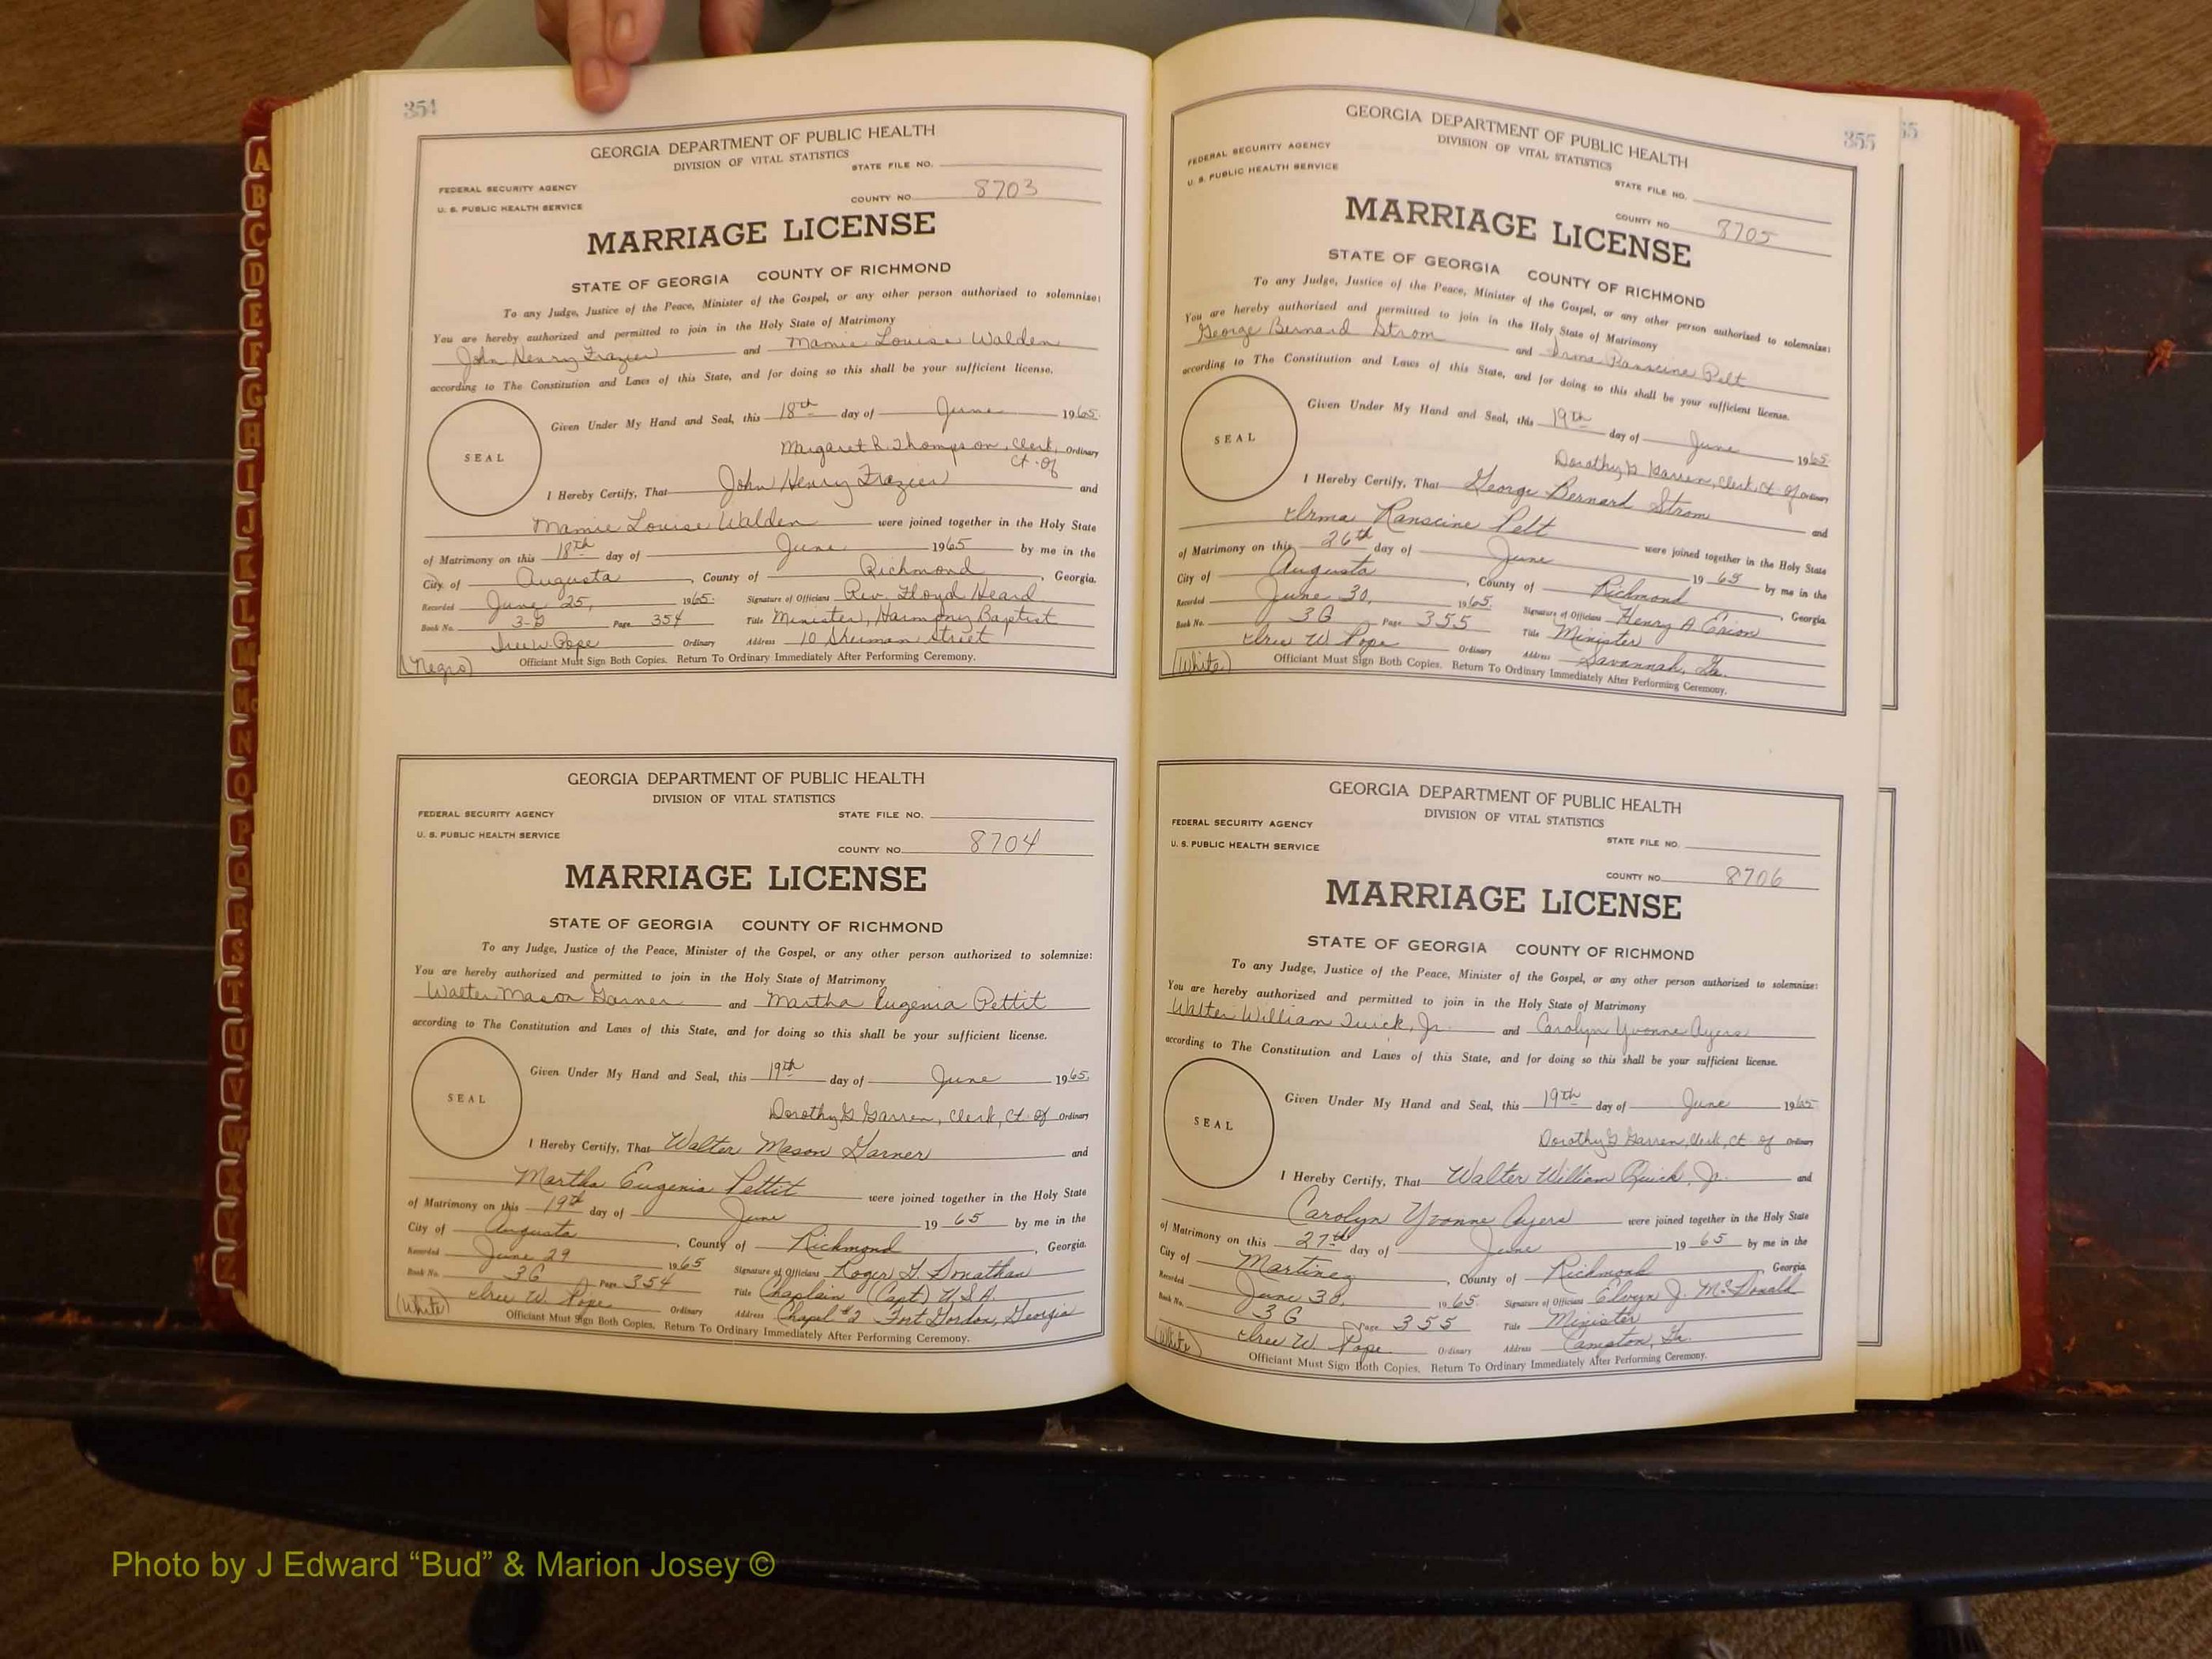 354
GEORGIA DEPARTMENT OF PUBLIC HEALTH
DIVISION OF VITAL STATISTICS
STATE FILE NO.
FEDERAL SECURITY AGENCY
U. S. PUBLIC HEALTH SERVICE
COUNTY NO. 8703
MARRIAGE LICENSE
STATE OF GEORGIA COUNTY OF RICHMOND
To any Judge, Justice of the Peace, Minister of the Gospel, or any other person authorized to solemnize:
You are hereby authorized and permitted to join in the Holy State of Matrimony
John Henry Frazier and Mamie Louise Walden
according to The Constitution and Laws of this State, and for doing so this shall be your sufficient license.
SEAL
Given Under My Hand and Seal, this 18th day of June 1965.
Margaret R. Thompson, Clerk, Ordinary
Ct. of
I Hereby Certify, That John Henry Frazier and
Mamie Louise Walden were joined together in the Holy State
of Matrimony on this 18th day of June 1965 by me in the
City of Augusta, County of Richmond, Georgia.
Recorded June 25, 1965. Signature of Officiant Rev. Floyd Heard
Book No. 3-G Page 354 Title Minister, Harmony Baptist
Iree W. Pope Ordinary Address 10 Sherman Street
(Negro) Officiant Must Sign Both Copies. Return To Ordinary Immediately After Performing Ceremony.
GEORGIA DEPARTMENT OF PUBLIC HEALTH
DIVISION OF VITAL STATISTICS
FEDERAL SECURITY AGENCY STATE FILE NO.
U. S. PUBLIC HEALTH SERVICE
COUNTY NO. 8704
MARRIAGE LICENSE
STATE OF GEORGIA COUNTY OF RICHMOND
To any Judge, Justice of the Peace, Minister of the Gospel, or any other person authorized to solemnize:
You are hereby authorized and permitted to join in the Holy State of Matrimony
Walter Mason Garner and Martha Eugenia Pettit
according to The Constitution and Laws of this State, and for doing so this shall be your sufficient license.
SEAL
Given Under My Hand and Seal, this 19th day of June 1965.
Dorothy G. Garren, Clerk, Ct. of Ordinary
I Hereby Certify, That Walter Mason Garner and
Martha Eugenia Pettit were joined together in the Holy State
of Matrimony on this 19th day of June 1965 by me in the
City of Augusta, County of Richmond, Georgia.
Recorded June 29 1965 Signature of Officiant Roger G. Donathan
Book No. 3G Page 354 Title Chaplain (Capt) U.S.A.
Iree W. Pope Ordinary Address Chapel #2 Fort Gordon, Georgia
(White) Officiant Must Sign Both Copies. Return To Ordinary Immediately After Performing Ceremony.
355
55
GEORGIA DEPARTMENT OF PUBLIC HEALTH
DIVISION OF VITAL STATISTICS
FEDERAL SECURITY AGENCY
U. S. PUBLIC HEALTH SERVICE
STATE FILE NO.
COUNTY NO. 8705
MARRIAGE LICENSE
STATE OF GEORGIA COUNTY OF RICHMOND
To any Judge, Justice of the Peace, Minister of the Gospel, or any other person authorized to solemnize:
You are hereby authorized and permitted to join in the Holy State of Matrimony
George Bernard Strom and Irma Ranscine Pelt
according to The Constitution and Laws of this State, and for doing so this shall be your sufficient license.
SEAL
Given Under My Hand and Seal, this 19th day of June 1965.
Dorothy G. Garren, Clerk, Ct. of Ordinary
I Hereby Certify, That George Bernard Strom and
Irma Ranscine Pelt were joined together in the Holy State
of Matrimony on this 26th day of June 1965 by me in the
City of Augusta, County of Richmond, Georgia.
Recorded June 30, 1965. Signature of Officiant Henry A
Book No. 3G Page 355 Title Minister
Iree W. Pope Ordinary Address Savannah, Ga.
(White) Officiant Must Sign Both Copies. Return To Ordinary Immediately After Performing Ceremony.
GEORGIA DEPARTMENT OF PUBLIC HEALTH
DIVISION OF VITAL STATISTICS
FEDERAL SECURITY AGENCY
U. S. PUBLIC HEALTH SERVICE
STATE FILE NO.
COUNTY NO. 8706
MARRIAGE LICENSE
STATE OF GEORGIA COUNTY OF RICHMOND
To any Judge, Justice of the Peace, Minister of the Gospel, or any other person authorized to solemnize:
You are hereby authorized and permitted to join in the Holy State of Matrimony
Walter William Quick, Jr. and Carolyn Yvonne Ayers
according to The Constitution and Laws of this State, and for doing so this shall be your sufficient license.
SEAL
Given Under My Hand and Seal, this 19th day of June 1965
Dorothy G. Garren, Clerk, Ct. of Ordinary
I Hereby Certify, That Walter William Quick, Jr. and
Carolyn Yvonne Ayers were joined together in the Holy State
of Matrimony on this 27th day of June 1965 by me in the
City of Martinez, County of Richmond Georgia.
Recorded June 30, 1965. Signature of Officiant Elvyn J. McDonald
Book No. 3G Page 355 Title Minister
Iree W. Pope Ordinary Address Ga.
(White) Officiant Must Sign Both Copies. Return To Ordinary Immediately After Performing Ceremony.
A
B
C
D
E
F
G
H
I
J
K
L
M
Mc
N
O
P
Q
R
S
T
U
V
W
X
Y
Z
Photo by J Edward “Bud” & Marion Josey ©